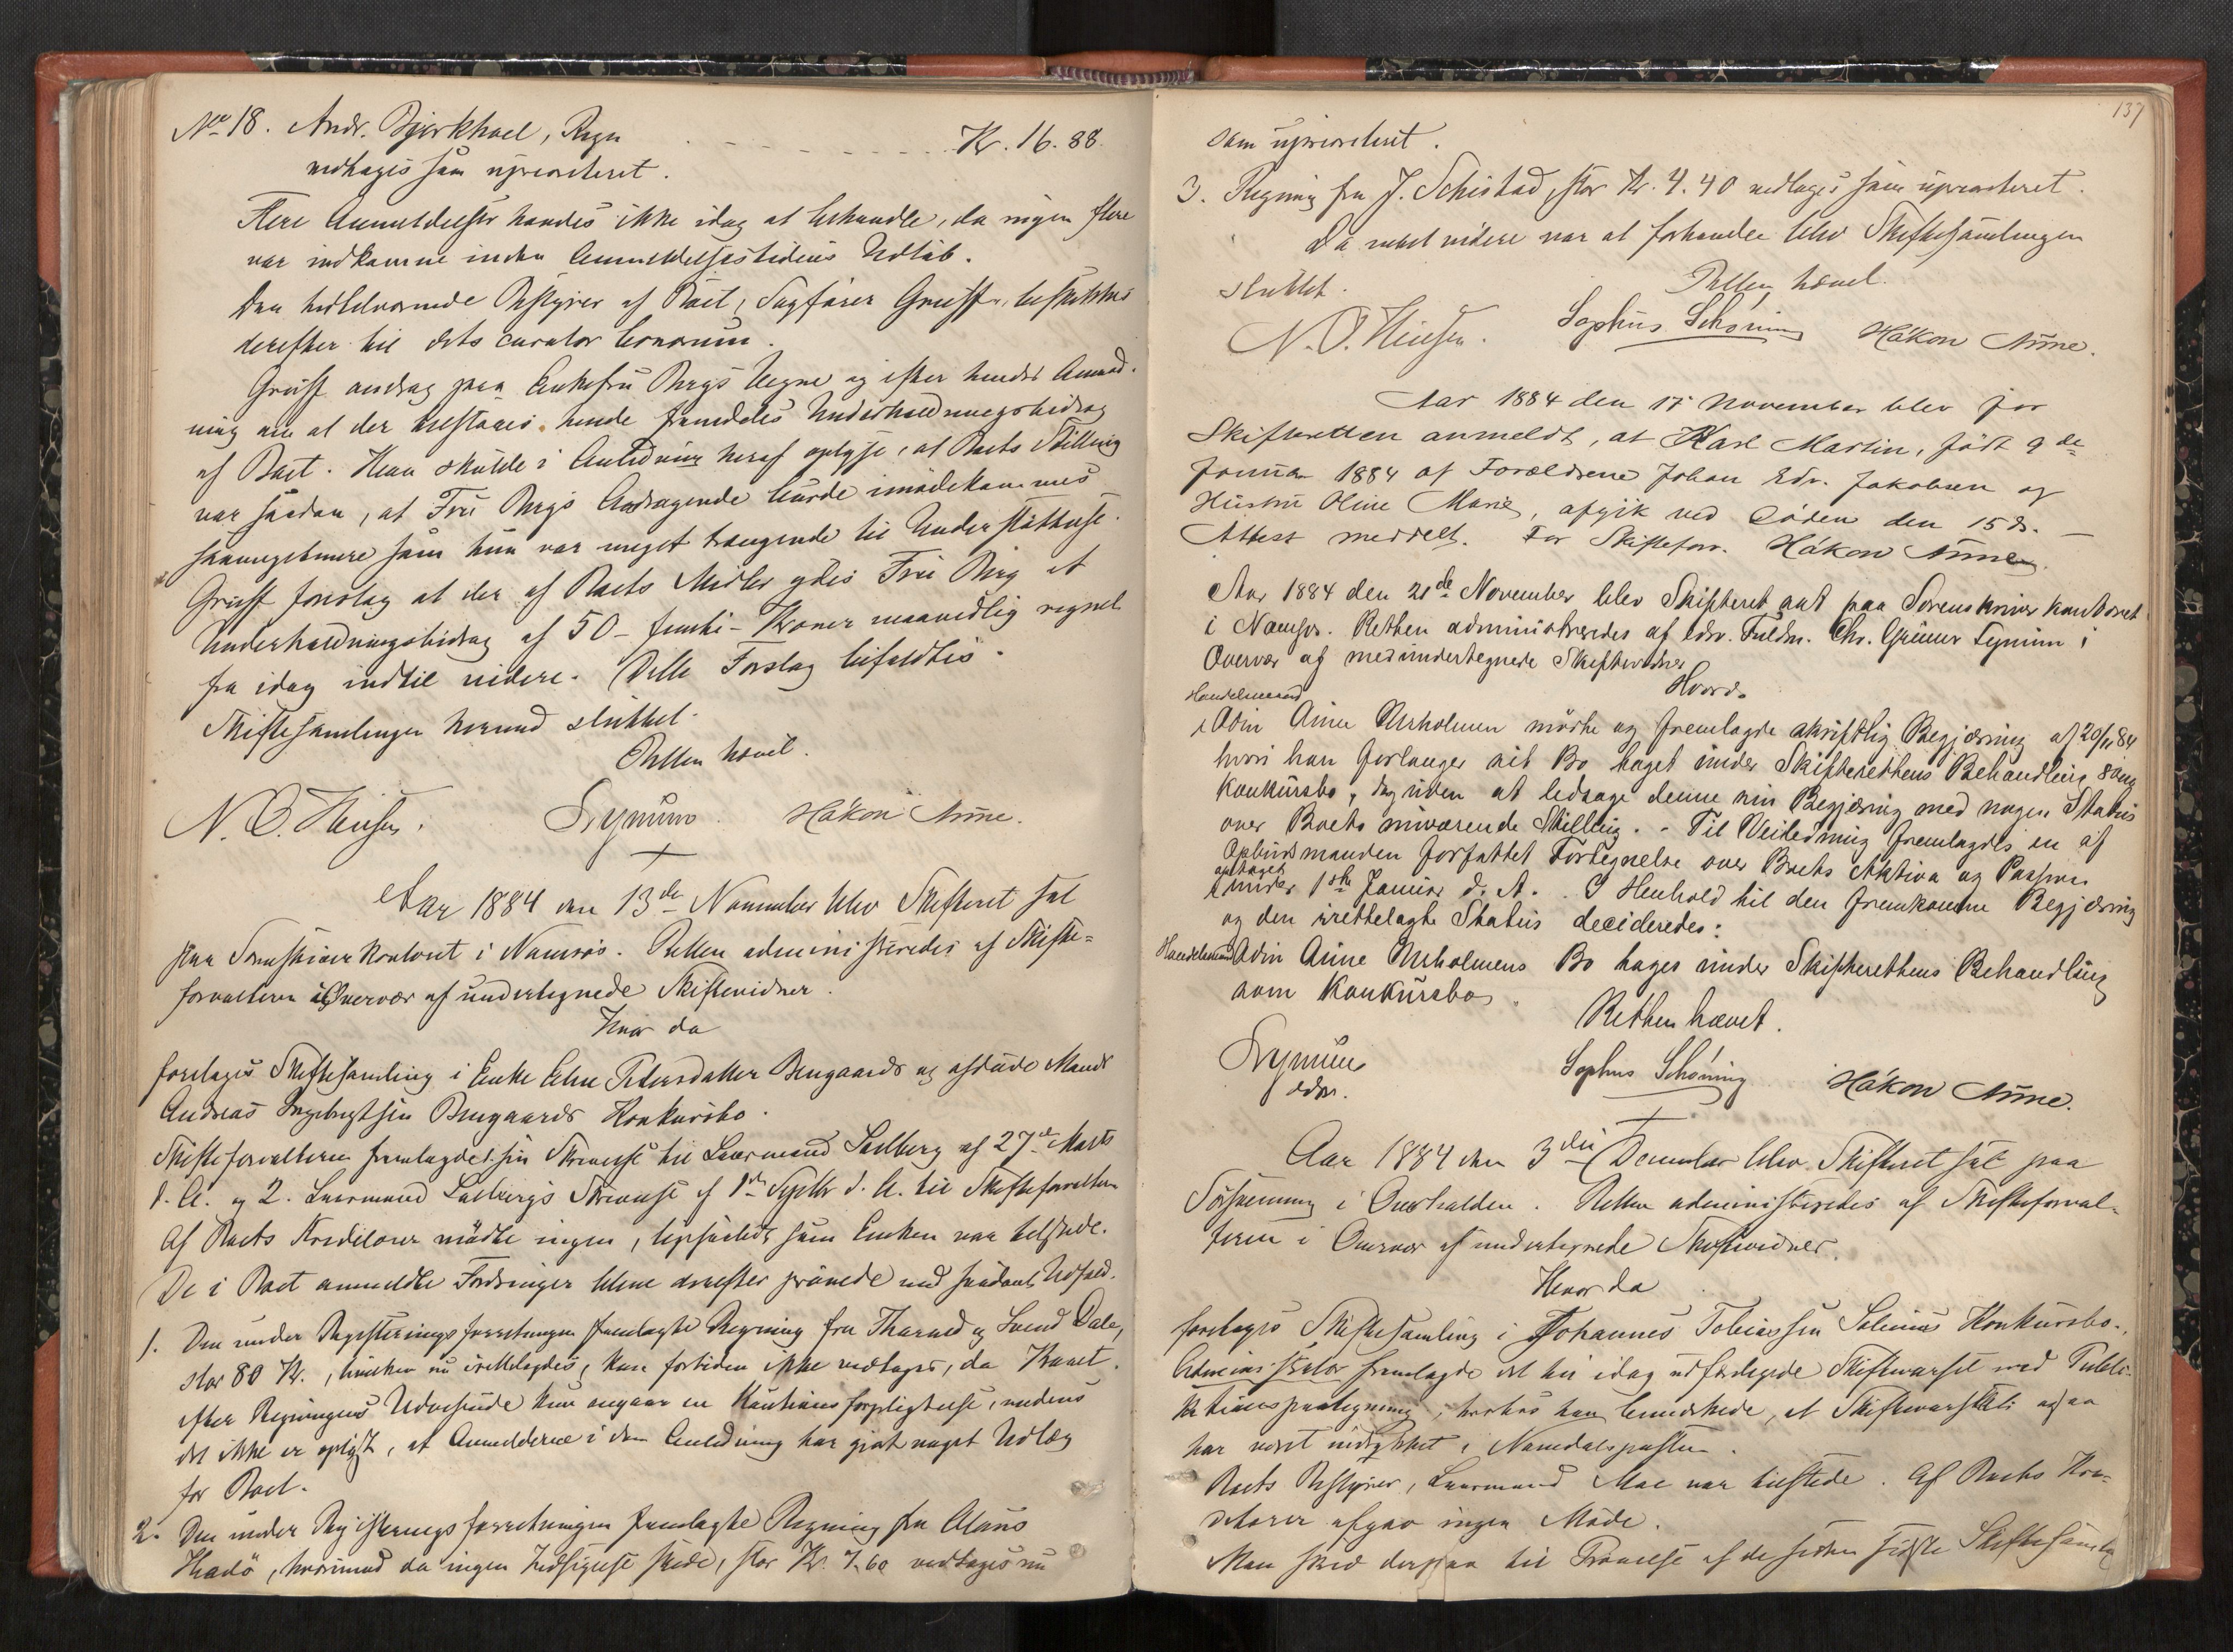 No 18. Andr. Bjørkhoel, Regn. Kr. 16.88.
vedtages som uprioriteret.
Flere Anmeldelser havdes ikke idag at behandle, da ingen flere
var indkomne inden Anmeldelsestidens Udløb.
Den midlertidige Bestyrer af Boet, Sagfører Gruff, beskikkes
derefter til dets curator bonorum.
Gruff androg paa Enkefru Bergs Vegne og efter hendes Anmod-
ning om at der tilstaaes hende fremdeles Underholdningsbidrag
af Boet. Han skulde i Anledning heraf oplyse, at Boets Stilling
var saadan, at Fru Bergs Andragende burde imødekommes
saameget mere som hun var meget trængende til Understøttelse.
Gruff foreslog at der af Boets Midler ydes Fru Berg et
Underholdningsbidrag af 50 - femti - Kroner maanedlig regnet
fra idag indtil videre. Dette Forslag bifaldtes.
Skiftesamlingen hermed sluttet.
Retten hævet.
N. O. Hansen. Lynum Håkon Anne.
Aar 1884 den 13de November blev Skifteret sat
paa Sorenskriverkontoret i Namsos. Retten administreredes af Skifte-
forvalteren i Overvær af undertegnede Skiftevidner.
Hvor da
foretoges Skiftesamling i Enke Eline Petersdatter Bengaards og afdøde Mands
Andreas Ingebrigtsen Bengaards Konkursbo.
Skifteforvalteren fremlagde 1. sin Skrivelse til Lensmand Salberg af 27de Marts
d. A. og 2. Lensmand Salbergs Skrivelse af 1ste Septbr d. A. til Skifteforvalteren
Af Boets Kreditorer mødte ingen, ligesaalidt som Enken var tilstede.
De i Boet anmeldte Fordringer bleve derefter prøvede med saadant Udfald.
1. Den under Registreringsforretningen fremlagte Regning fra Tharald og Svend Dale,
stor 80 Kr., hvilken nu irettelagdes, kan fortiden ikke vedtages, da Kravet
efter Regningens Udvisende kun angaar en Kautionsforpligtelse, medens
det ikke er oplyst, at Anmelderne i den Anledning har gjort noget Udlæg
for Boet.
2. Den under Registreringsforretningen fremlagte Regning fra Claus
Hadø, hvorimod da ingen Indsigelse skede, stor Kr. 7.60 vedtages nu
137
som uprioriteret.
3. Regning fra J. Schistad, stor Kr. 4.40 vedtages som uprioriteret.
Da intet videre var at forhandle blev Skiftesamlingen
sluttet.
Retten hævet.
N. O. Hansen. Sophus Schøning Håkon Anne.
Aar 1884 den 17 November blev for
Skifteretten anmeldt, at Karl Martin, født 9de
Januar 1884 af Forældrene Johan Edv. Jakobsen og
Hustru Oline Marie, afgik ved Døden den 15 ds. —
Attest meddelt. For Skifteforv. Håkon Anne
Aar 1884 den 21de November blev Skifteret sat paa Sorenskriverkontoret
i Namsos. Retten administreredes af edsv. Fuldm. Chr. Grüner Lynum i
Overvær af medundertegnede Skiftevidner
Hvor da
Handelsmand
Odin Anne Urholmen mødte og fremlagde skriftlig Begjæring af 20/11 84
hvori han forlanger sit Bo taget under Skifterettens Behandling som
Konkursbo, dog uden at ledsage denne sin Begjæring med nogen Status
over Boets nuværende Stilling. - Til Veiledning fremlagdes en af
Opbudsmanden forfattet Fortegnelse over Boets Aktiva og Passiva
optaget
under 1ste Januar d. A. I Henhold til den fremkomne Begjæring
og den irettelagte Status decideredes:
Handelsmand Odin Anne Urholmens Bo tages under Skifterettens Behandling
som Konkursbo.
Retten hævet.
Lynum Sophus Schøning Håkon Anne.
edsv.
Aar 1884 den 3die December blev Skifteret sat paa
i Overhalden. Retten administreredes af Skifteforval-
teren i Overvær af undertegnede Skiftevidner.
Hvor da
foretoges Skiftesamling i Johannes Tobiassen Solums Konkursbo.
Administrator fremlagde det til idag udfærdigede Skiftevarsel med Publi-
kationspaategning, hvorhos han bemærkede, at Skiftevarselet ogsaa
har været indrykket i Namdalsposten.
Boets Bestyrer, Lensmand Moe var tilstede. Af Boets Kre-
ditorer afgav ingen Møde.
Man skred derpaa til Prøvelse af de siden sidste Skiftesamling